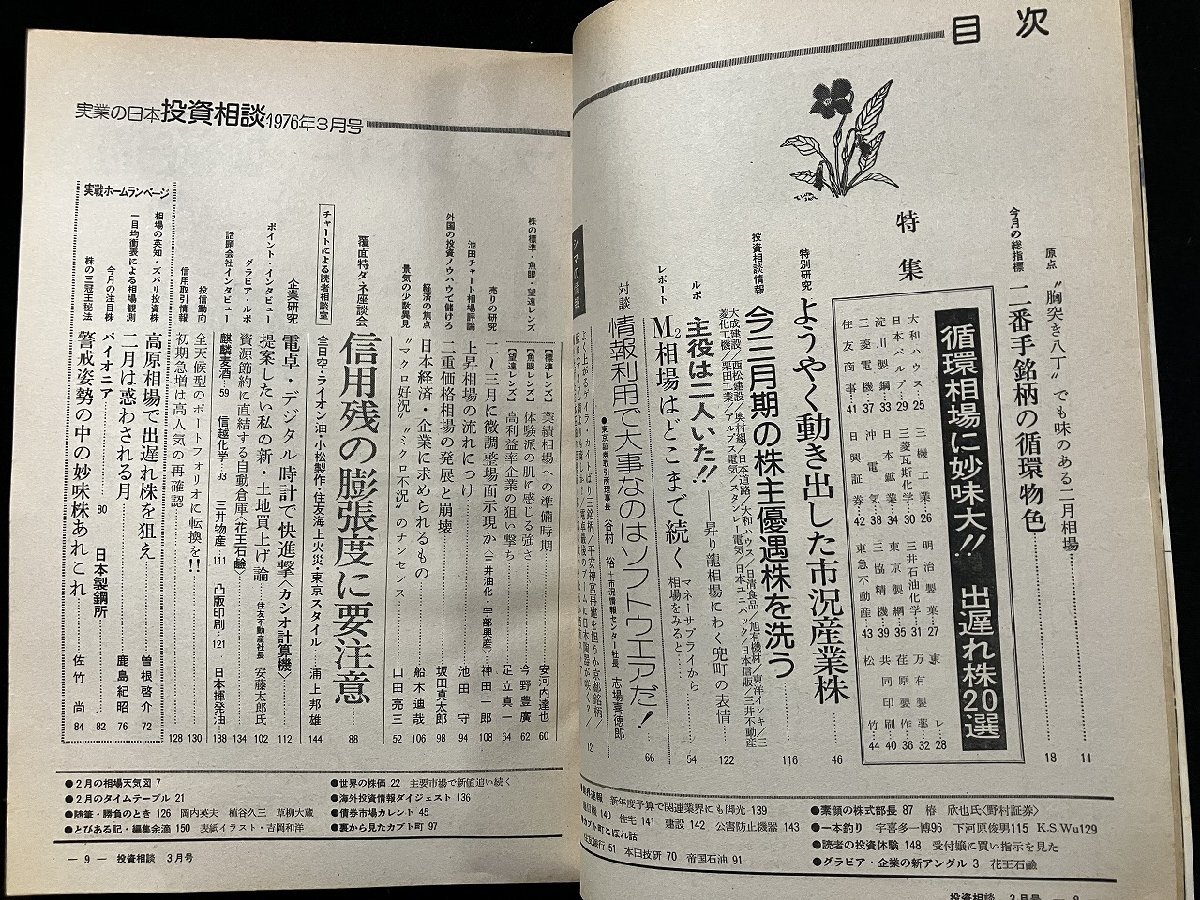 目次
原点 〝胸突き八丁〟でも味のある二月相場 11
今月の総指標 二番手銘柄の循環物色 18
特集
循環相場に妙味大!! 出遅れ株20選
大和ハウス 25 三機工業 26 明治製菓 27 東レ 28
日本バルブ 29 三菱瓦斯化学 30 三井石油化学 31 万有製薬 32
淀川製鋼 33 日本鉱業 34 東京製綱 35 荏原製作 36
三菱電機 37 沖電気 38 三協精機 39 共同印刷 40
住友商事 41 日興証券 42 東急不動産 43 松竹 44
特別研究 ようやく動き出した市況産業株 46
投資相談情報 今三月期の株主優遇株を洗う 116
大成建設/西松建設/奥村組/日本道路/大和ハウス/日清食品/旭有機材/東洋インキ/三
菱化工機/栗田工業/アルプス電気/スタンレー電気/日本ユニパック/日本信販/三井不動産
ルポ 主役は二人いた!! ――昇り龍相場にわく兜町の表情 122
レポート M2相場はどこまで続く マネーサプライから相場をみると 54
対談 情報利用で大事なのはソフトウエアだ! 66
谷村 裕+市況情報センター社長 志場喜徳郎
新年度予算で関連業界にも陽光 139
住宅 141 建設 142 公害防止機器 143
51 本日技研 70 帝国石油 91
●素顔の株式部長 87 椿 欣也氏〈野村証券〉
●一本釣り 宇喜多一博96 下河原俊男115 K.S Wu129
●読者の投資体験 148 受付嬢に買い指示を見た
●グラビア・企業の新アングル 3 花王石鹸
実業の日本 投資相談 1976年3月号
株の標準・魚眼・望遠レンズ
〔標準レンズ〕 実績相場への準備時期 安河内達也 60
〔魚眼レンズ〕 体験派の肌に感じる強さ 今野豊廣 62
〔望遠レンズ〕 高利益率企業の狙い撃ち 足立真一 64
売りの研究 一~三月に微調整場面示現か 神田一郎 108
池田チャート相場評論 上昇相場の流れにつけ 池田 守 94
外国の投資ノウハウで儲けろ 二重価格相場の発展と崩壊 坂田真太郎 98
経済の焦点 日本経済・企業に求められるもの 船木迪哉 106
景気の少数異見 〝マクロ好況〟〝ミクロ不況〟のナンセンス 山田亮三 52
覆面特ダネ座談会 信用残の膨張度に要注意 88
チャートによる読者相談室 全日空・ライオン油・小松製作・住友海上火災・東京スタイル 浦上邦雄 144
企業研究 電卓・デジタル時計で快進撃〈カシオ計算機〉 112
ポイント・インタビュー 提案したい私の新・土地買上げ論 住友不動産社長 安藤太郎氏 102
グラビア・ルポ 資源節約に直結する自動倉庫〈花王石鹸〉 134
証券会社インタビュー 麒麟麦酒 59 信越化学 三井物産 111 凸版印刷 121 日本揮発油 138
投信動向 全天候型のポートフォリオに転換を!! 130
信用取引情報 初期急増は高人気の再確認 128
実戦ホームランページ
相場の英知・ズバリ投資株 高原相場で出遅れ株を狙え 曽根啓介 72
一目均衡表による相場観測 二月は惑わされる月 鹿島紀昭 76
今月の注目株 パイオニア 80 日本製鋼所 82
株の三冠王秘法 警戒姿勢の中の妙味株あれこれ 佐竹 尚 84
●2月の相場天気図 7
●2月のタイムテーブル 21
●随筆・勝負のとき 126 岡内英夫 植谷久三 草柳大蔵
●とびある記・編集余滴 150 表紙イラスト・吉岡和洋
●世界の株価 22 主要市場で新値追い続く
●海外投資情報ダイジェスト 136
●債券市場カレント 48
●裏から見たカブト町 97
― 9 ― 投資相談 3月号